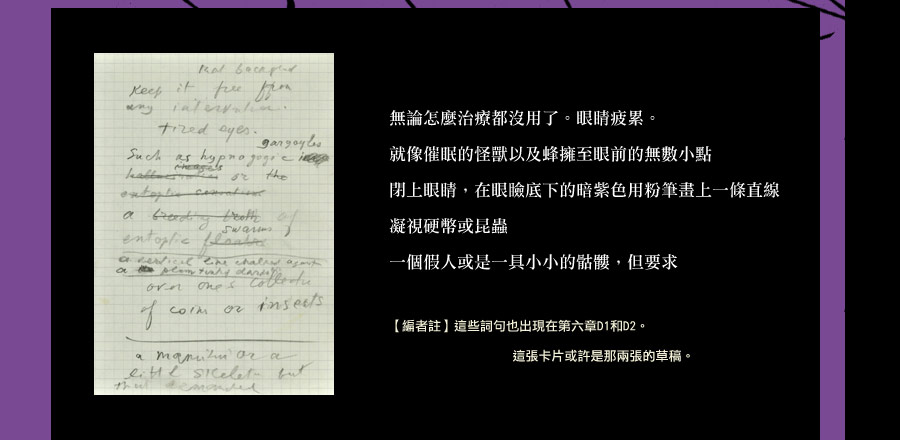 Keep it free from
any intervention.
tired eyes.
gargoyles
Such as hypnagogic
images
or the
entoptic sensations
a breeding
of
swarms
entoptic floaters
a vertical line chalked against
a plum
over one's collection
of coins or insects
a manikin or a
little skeleton but
that demanded
無論怎麼治療都沒用了。眼睛疲累。
就像催眠的怪獸以及蜂擁至眼前的無數小點
閉上眼睛，在眼瞼底下的暗紫色用粉筆畫上一條直線
凝視硬幣或昆蟲
一個假人或是一具小小的骷髏，但要求
【編者註】這些詞句也出現在第六章D1和D2。
這張卡片或許是那兩張的草稿。